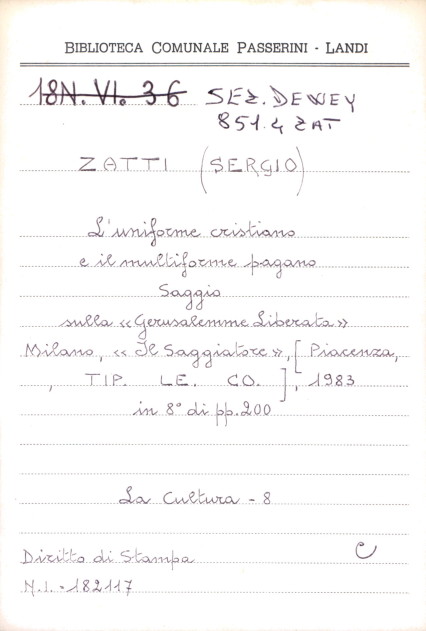 BIBLIOTECA COMUNALE PASSERINI - LANDI
18N. VI. 36 SEZ. DEWEY
851.4 ZAT
ZATTI (SERGIO)
L'uniforme cristiano
e il multiforme pagano
Saggio
sulla «Gerusalemme Liberata»
Milano, «Il Saggiatore», [Piacenza,
, TIP. LE. CO.], 1983
in 8° di pp. 200
La Cultura - 8
Diritto di Stampa
C
N.I. - 182117